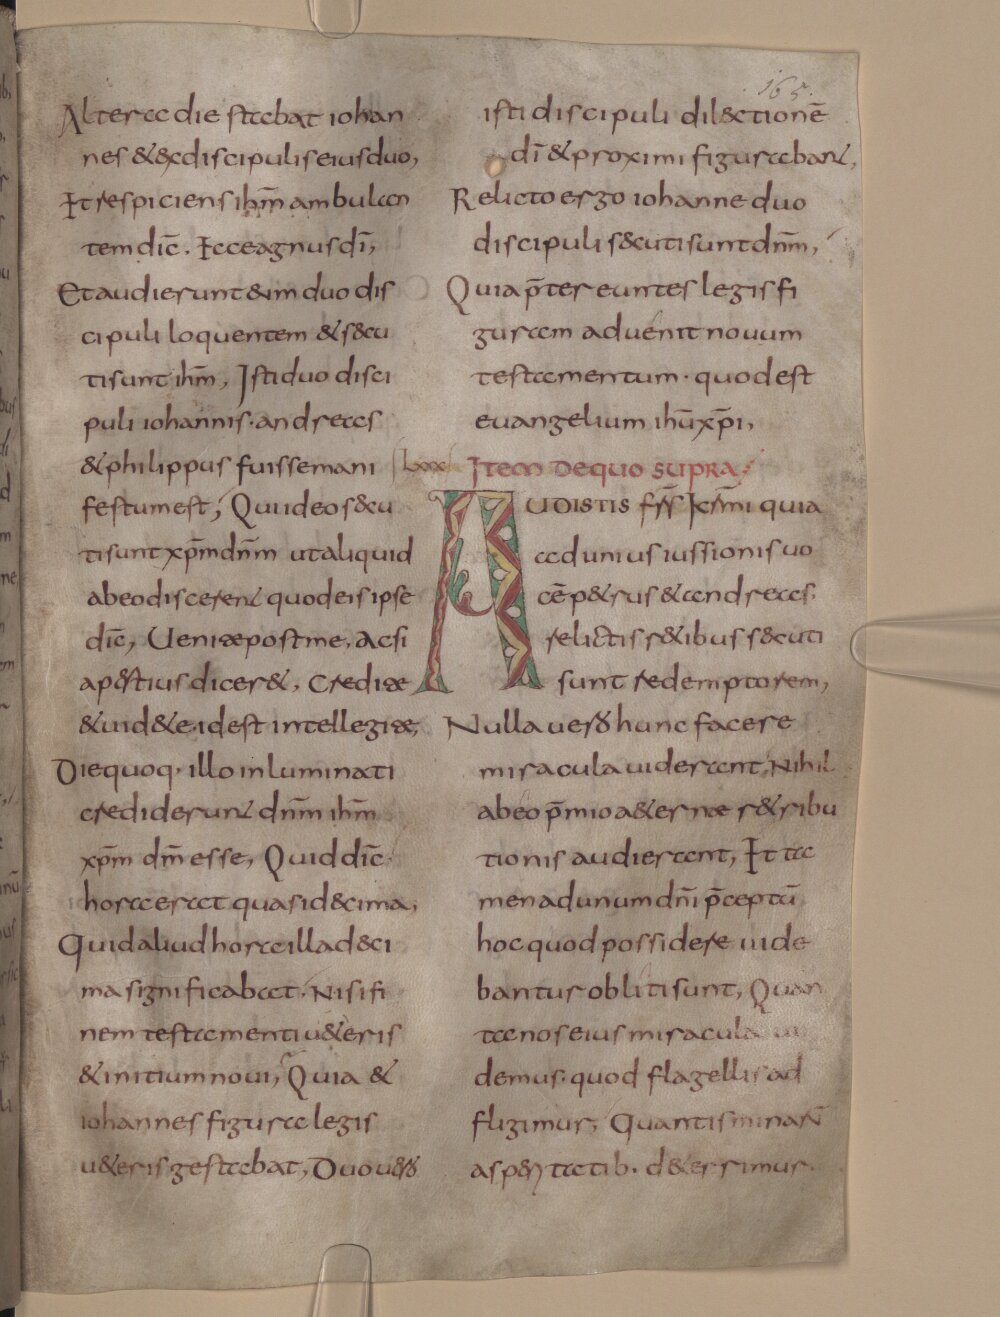 165.
Altera die stabat iohan
nes & ex discipulis eius duo,
Et respiciens ih̄m ambulan
tem dic̄. Ecce agnus dī,
Et audierunt eum duo dis
cipuli loquentem & secu
ti sunt ih̄m, Isti duo disci
puli iohannis. andreas
& philippus fuisse mani
festum est, Qui ideo secu
ti sunt xp̄m dn̄m ut aliquid
ab eo discerent quod eis ipse
dic̄, Uenite post me, ac si
aperti͛us diceret, Credite
& uidete idest intellegite,
Die quoq· illo inluminati
crediderunt dn̄m ih̄m
xp̄m dm̄ esse, Quid dic̄
hora erat quasi decima,
Quid aliud hora illa deci
ma significabat. Nisi fi
nem testamenti ueteris
& initium noui, Quia &
iohannes figura legis
ueteris gestabat, Duo uero
isti discipuli dilectionē
dī & proximi figurabant,
Relicto ergo iohanne duo
discipuli secuti sunt dn̄m,
Quia p̄tereuntes legis fi
guram aduenit nouum
testamentum. quod est
euangelium ih̄u xp̄i,
lxxx Item de quo supra
Audistis fr̄s kr̄mi quia
ad unius iussionis uo
cē petrus & andreas
relictis retibus secuti
sunt redemptorem,
Nulla uero hunc facere
miracula uiderant, Nihil
ab eo p̄mio aeternae retribu
tionis audierant, Et ta
men ad unum dn̄i p̄ceptū
hoc quod possidere uide
bantur obliti sunt, Quan
ta nos eius miracula ui
demus. quod flagellis ad
fligimur, Quantis minarū
asperitatib· deterrimur.